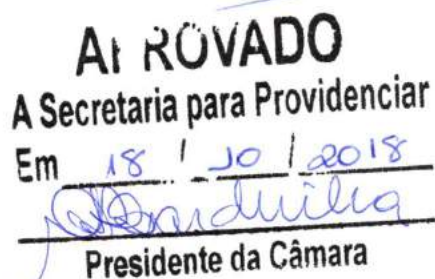 APROVADO
A Secretaria para Providenciar
Em 18 / 10 / 2018
Presidente da Câmara